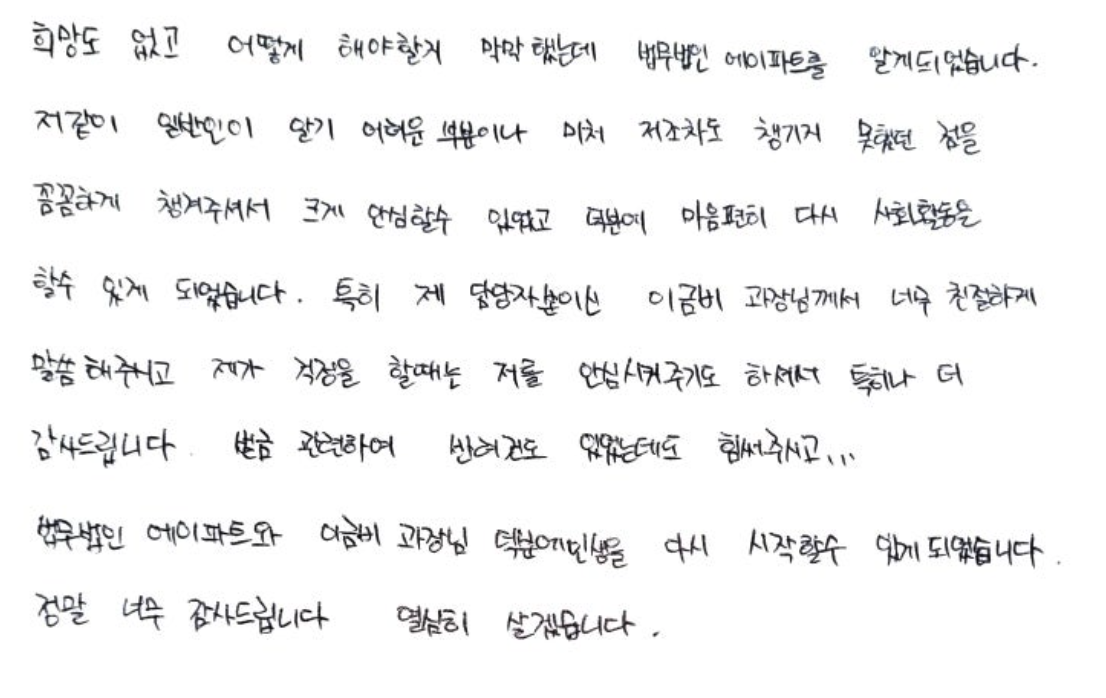 희망도 없고 어떻게 해야할지 막막했는데 법무법인 에이파트를 알게되었습니다.
저같이 일반인이 알기 어려운 부분이나 미처 저조차도 챙기지 못했던 점을
꼼꼼하게 챙겨주셔서 크게 안심할수 있었고 덕분에 마음편히 다시 사회활동을
할수 있게 되었습니다. 특히 제 담당자분이신 이금비 과장님께서 너무 친절하게
말씀해주시고 제가 걱정을 할때는 저를 안심시켜주기도 하셔서 특히나 더
감사드립니다. 벌금 관련하여 반려건도 있었는데도 힘써주시고...
법무법인 에이파트와 이금비 과장님 덕분에 인생을 다시 시작할수 있게되었습니다.
정말 너무 감사드립니다 열심히 살겠습니다.